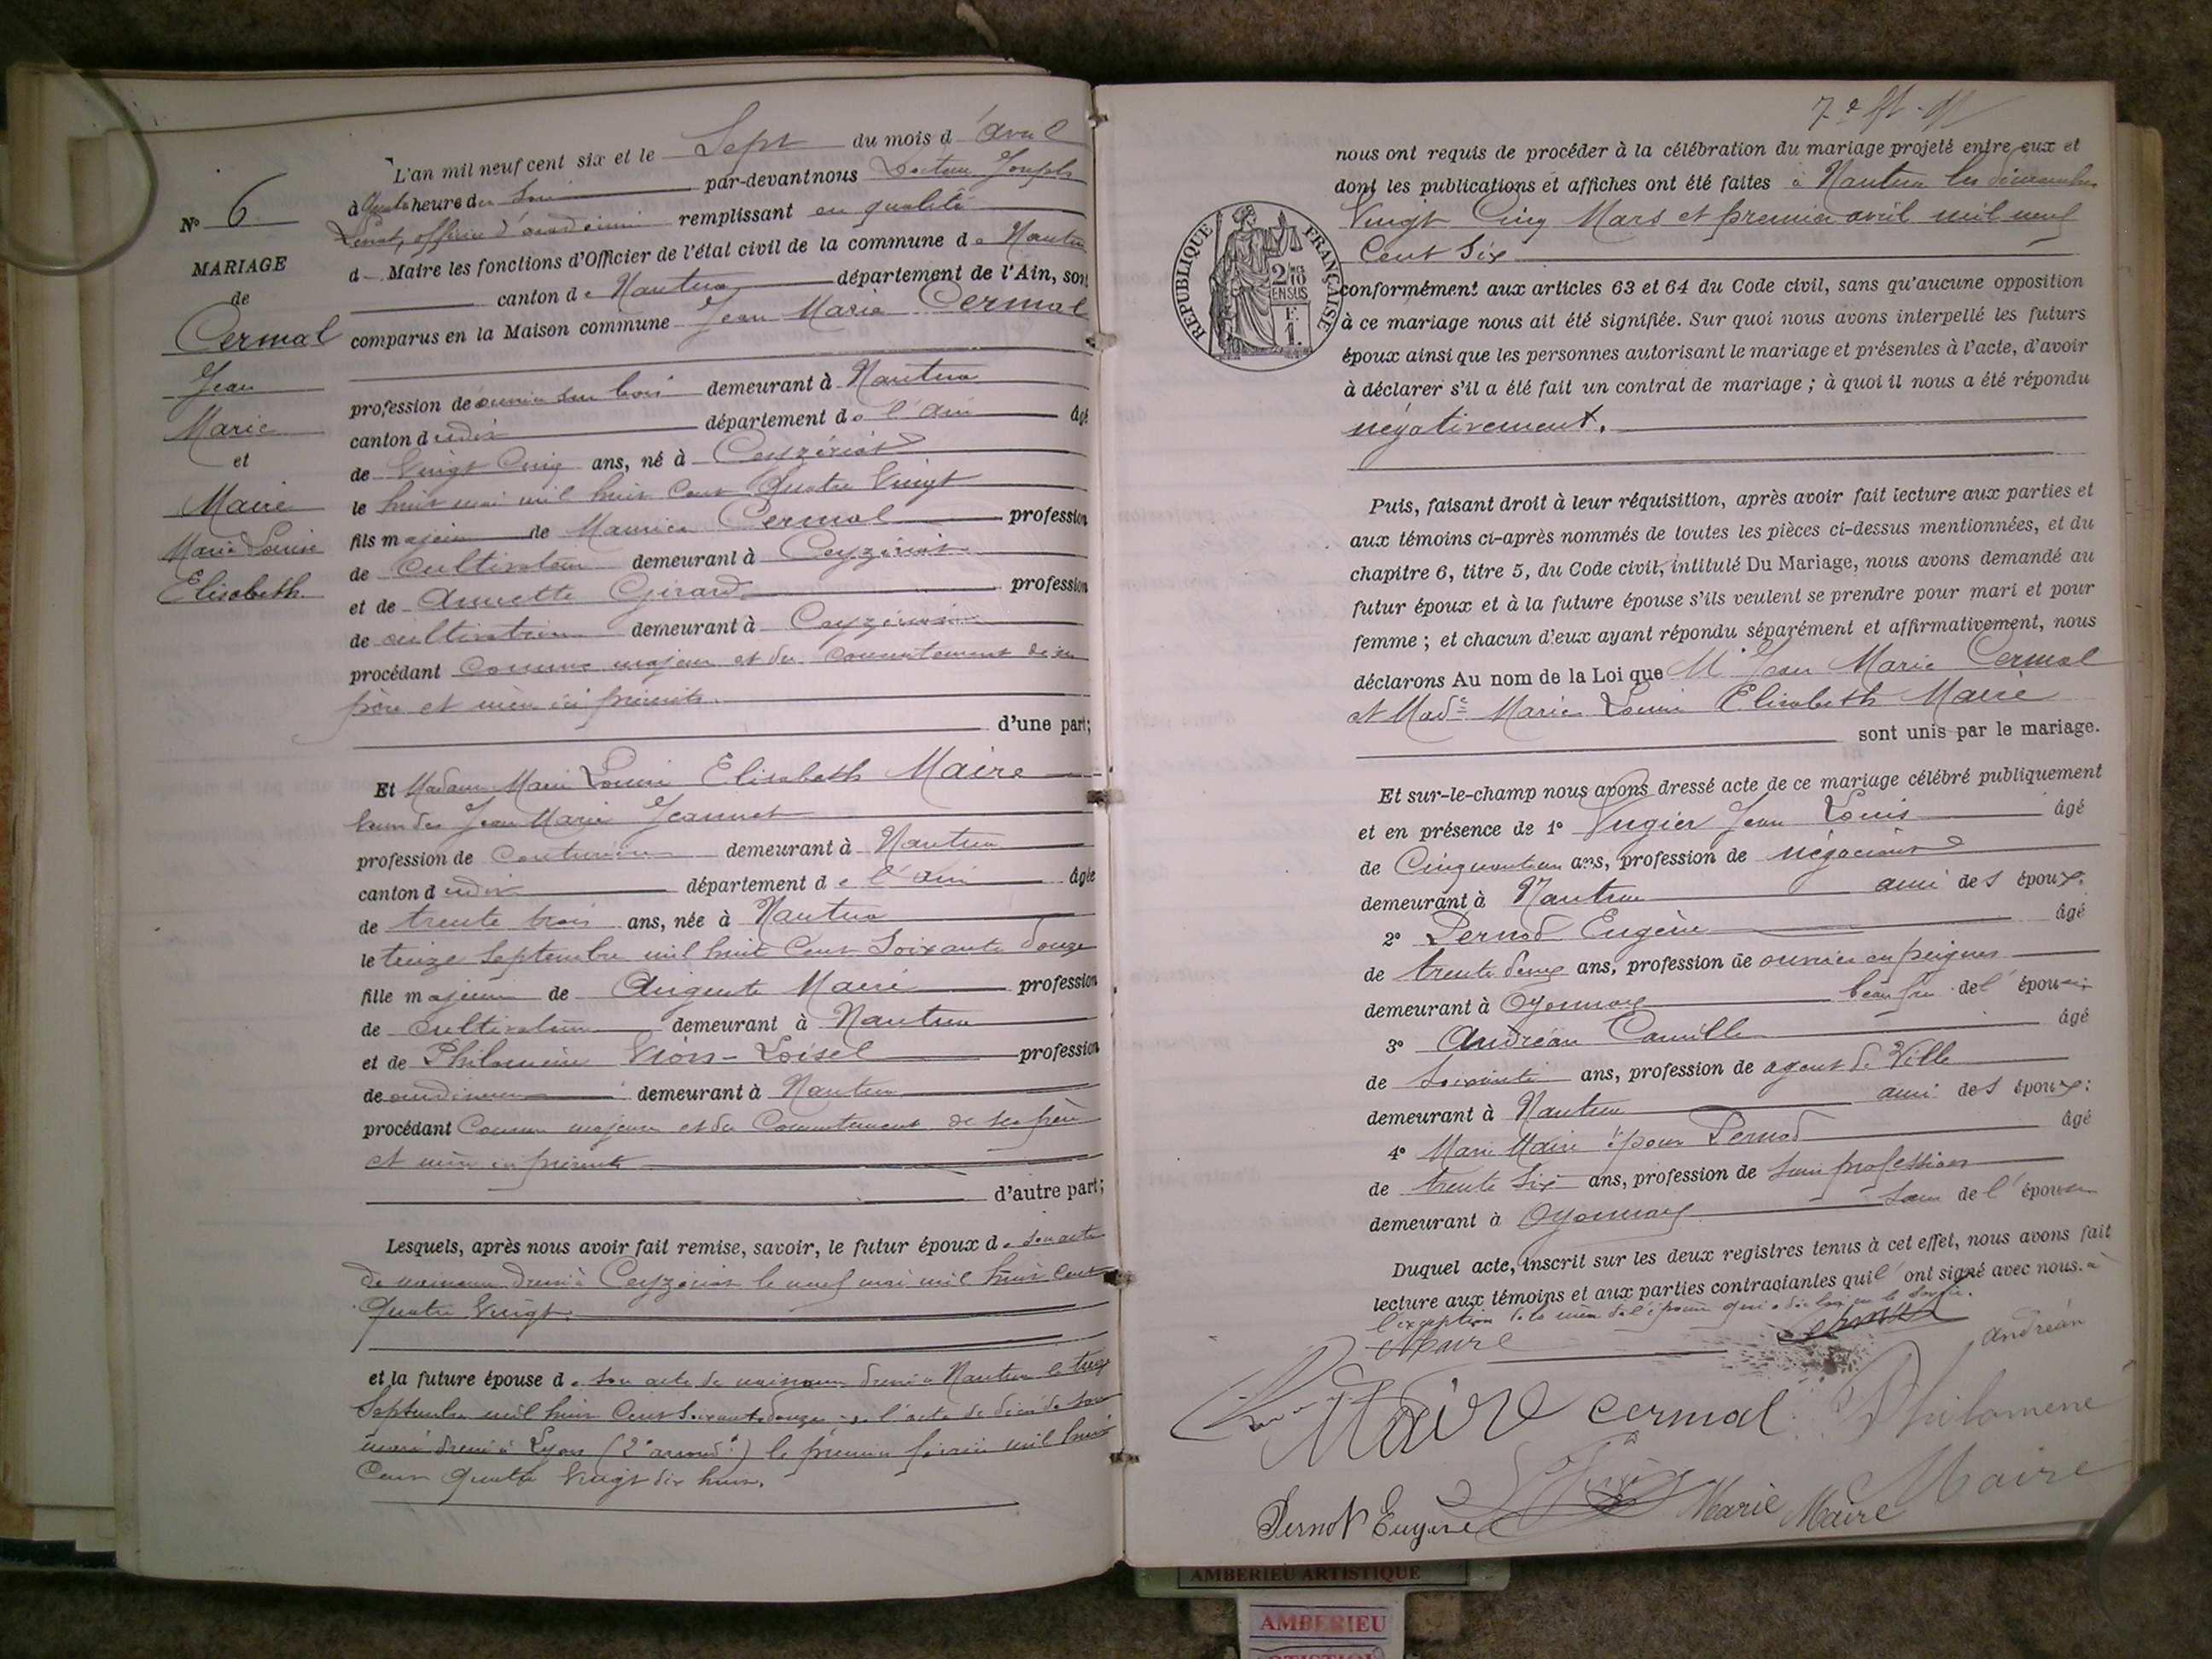 N° 6
MARIAGE
de
Cermal
Jean
Marie
et
Maire
Marie Louise
Elisabeth
L'an mil neuf cent six et le Sept du mois d'avril
à quatre heures du soir par-devant nous Docteur Joseph
officier d'académie remplissant en qualité
d Maire les fonctions d'Officier de l'état civil de la commune de Nantua
canton de Nantua département de l'Ain, sont
comparus en la Maison commune Jean Marie Cermal
profession de ouvrier sur bois demeurant à Nantua
canton dudit département de l'Ain âgé
de Vingt Cinq ans, né à Ceyzériat
le huit mai mil huit Cent Quatre Vingt
fils majeur de Maurice Cermal profession
de Cultivateur demeurant à Ceyzériat
et de Annette Girard profession
de cultivatrice demeurant à Ceyzériat
procédant Comme majeur et du Consentement de ses
père et mère ici présents.
d'une part;
Et Madame Marie Louise Elisabeth Maire
veuve de Jean Marie Jeannet
profession de Couturière demeurant à Nantua
canton dudit département de l'Ain âgée
de trente trois ans, née à Nantua
le treize Septembre mil huit Cent Soixante douze
fille majeure de Auguste Maire profession
de cultivateur demeurant à Nantua
et de Philomène Loisel profession
de demeurant à Nantua
procédant Comme majeure et du Consentement de ses père
et mère ici présents
d'autre part;
Lesquels, après nous avoir fait remise, savoir, le futur époux de son acte
de naissance dressé à Ceyzériat le neuf mai mil huit cent
Quatre Vingt.
et la future épouse de son acte de naissance dressé à Nantua le treize
Septembre mil huit Cent Soixante douze l'acte de décès de son
mari dressé à Lyon (2e arrondt) le premier février mil huit
Cent Quatre Vingt dix huit.
nous ont requis de procéder à la célébration du mariage projeté entre eux et
dont les publications et affiches ont été faites à Nantua les dimanches
Vingt Cinq Mars et premier avril mil neuf
Cent Six
RÉPUBLIQUE FRANÇAISE
2/10 EN SUS
F. 1.
conformément aux articles 63 et 64 du Code civil, sans qu'aucune opposition
à ce mariage nous ait été signifiée. Sur quoi nous avons interpellé les futurs
époux ainsi que les personnes autorisant le mariage et présentes à l'acte, d'avoir
à déclarer s'il a été fait un contrat de mariage ; à quoi il nous a été répondu
négativement.
Puis, faisant droit à leur réquisition, après avoir fait lecture aux parties et
aux témoins ci-après nommés de toutes les pièces ci-dessus mentionnées, et du
chapitre 6, titre 5, du Code civil, intitulé Du Mariage, nous avons demandé au
futur époux et à la future épouse s'ils veulent se prendre pour mari et pour
femme ; et chacun d'eux ayant répondu séparément et affirmativement, nous
déclarons Au nom de la Loi que M Jean Marie Cermal
et Made Marie Louise Elisabeth Maire
sont unis par le mariage.
Et sur-le-champ nous avons dressé acte de ce mariage célébré publiquement
et en présence de 1° Vugier Jean Louis âgé
de Cinquante un ans, profession de négociant
demeurant à Nantua ami des époux.
2° Pernod Eugène âgé
de trente deux ans, profession de ouvrier en peignes
demeurant à Oyonnax beau frère de l'épouse
3° Andréan Camille âgé
de Soixante ans, profession de agent de Ville
demeurant à Nantua ami des époux;
4° Marie Maire épouse Pernod âgé
de trente six ans, profession de sans profession
demeurant à Oyonnax soeur de l'épouse
Duquel acte, inscrit sur les deux registres tenus à cet effet, nous avons fait
lecture aux témoins et aux parties contractantes qui l'ont signé avec nous. à
l'exception de la mère de l'épouse qui a déclaré ne le savoir.
Maire
Andréan
Maire cermal Philomène
Maire
Pernod Eugène
Marie Maire
AMBERIEU ARTISTIQUE
AMBERIEU
ARTISTIQUE